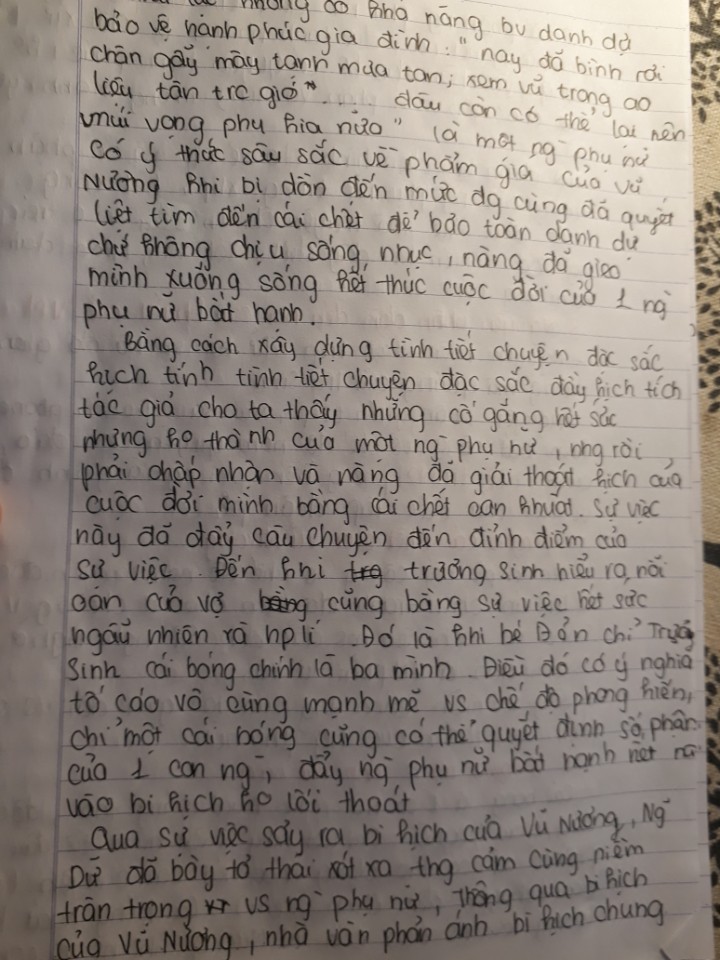 không có khả năng bv danh dự
bảo vệ hành phúc gia đình. " nay đã bình rơi
chân gãy mây tanh mưa tan; sem vũ trong ao
liễu tân trc gió"... dâu còn có thể lại nên
múi vọng phu kia nữa" là một ng phụ nữ
có ý thức sâu sắc về phẩm gía của vũ
Nương khi bị dồn đến mức đg cùng đã quyết
liệt tìm đến cái chết để bảo toàn danh dự
chứ không chịu sống nhục, nàng đã gieo
mình xuống sông kết thúc cuộc đời của 1 ng
phụ nữ bất hạnh.
Bằng cách xáy dựng tình tiết chuyện đặc sắc
kịch tính tình tiết chuyện đặc sắc đầy kịch tích
tác giả cho ta thấy những cố gắng hết sức
nhưng ko thành của một ng phụ nữ, nhg rồi
phải chấp nhận và nàng đã giải thoát kịch của
cuộc đời mình bằng cái chết oan khuất. Sự việc
này đã đẩy câu chuyện đến đỉnh điểm của
sự việc. Đến khi trg trương sinh hiểu ra, nỗi
oán của vợ bằng cũng bằng sự việc hết sức
ngẫu nhiên rà hpli. Đó là khi bé Đản chỉ Trương
Sinh cái bóng chính là ba mình. Điều đó có ý nghĩa
tố cáo vô cùng mạnh mẽ vs chế độ phong kiến,
chỉ một cái bóng cũng có thể quyết định số phận
của 1 con ng, đẩy ng phụ nữ bất hạnh nết na
vào bi kịch ko lối thoát
Qua sự việc sảy ra bi kịch của Vũ Nương, Ng
Dữ đã bày tỏ thái xót xa thg cảm cùng niềm
trân trọng vs ng phụ nữ, thông qua bi kịch
của Vũ Nương, nhà văn phản ánh bi kịch chung